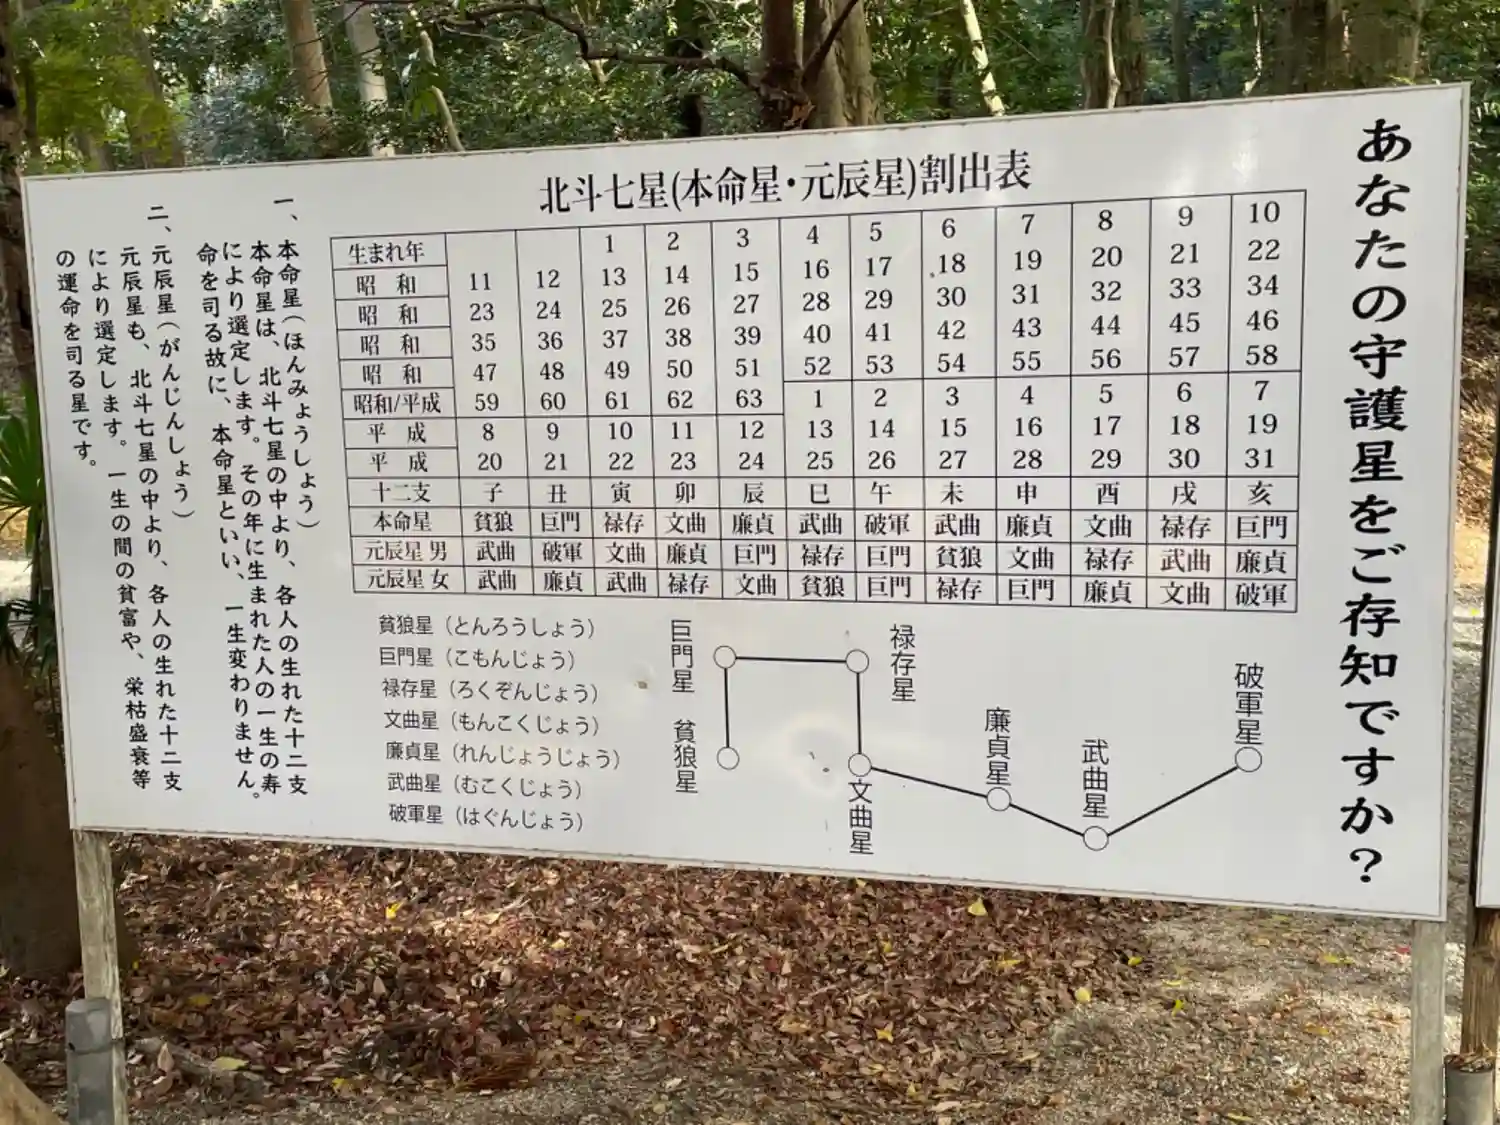 あなたの守護星をご存知ですか?
北斗七星(本命星・元辰星)割出表
生まれ年 1 2 3 4 5 6 7 8 9 10
昭和 11 12 13 14 15 16 17 18 19 20 21 22
昭和 23 24 25 26 27 28 29 30 31 32 33 34
昭和 35 36 37 38 39 40 41 42 43 44 45 46
昭和 47 48 49 50 51 52 53 54 55 56 57 58
昭和/平成 59 60 61 62 63 1 2 3 4 5 6 7
平成 8 9 10 11 12 13 14 15 16 17 18 19
平成 20 21 22 23 24 25 26 27 28 29 30 31
十二支 子 丑 寅 卯 辰 巳 午 未 申 酉 戌 亥
本命星 貧狼 巨門 禄存 文曲 廉貞 武曲 破軍 武曲 廉貞 文曲 禄存 巨門
元辰星 男 武曲 破軍 文曲 廉貞 巨門 禄存 巨門 貧狼 文曲 禄存 武曲 廉貞
元辰星 女 武曲 廉貞 武曲 禄存 文曲 貧狼 巨門 禄存 巨門 廉貞 文曲 破軍
貧狼星(とんろうしょう)
巨門星(こもんじょう)
禄存星(ろくぞんじょう)
文曲星(もんこくじょう)
廉貞星(れんじょうじょう)
武曲星(むこくじょう)
破軍星(はぐんじょう)
巨門星
貧狼星
禄存星
文曲星
廉貞星
武曲星
破軍星
一、本命星(ほんみょうしょう)
本命星は、北斗七星の中より、各人の生れた十二支
により選定します。その年に生まれた人の一生の寿
命を司る故に、本命星といい、一生変わりません。
二、元辰星(がんじんしょう)
元辰星も、北斗七星の中より、各人の生れた十二支
により選定します。一生の間の貧富や、栄枯盛衰等
の運命を司る星です。